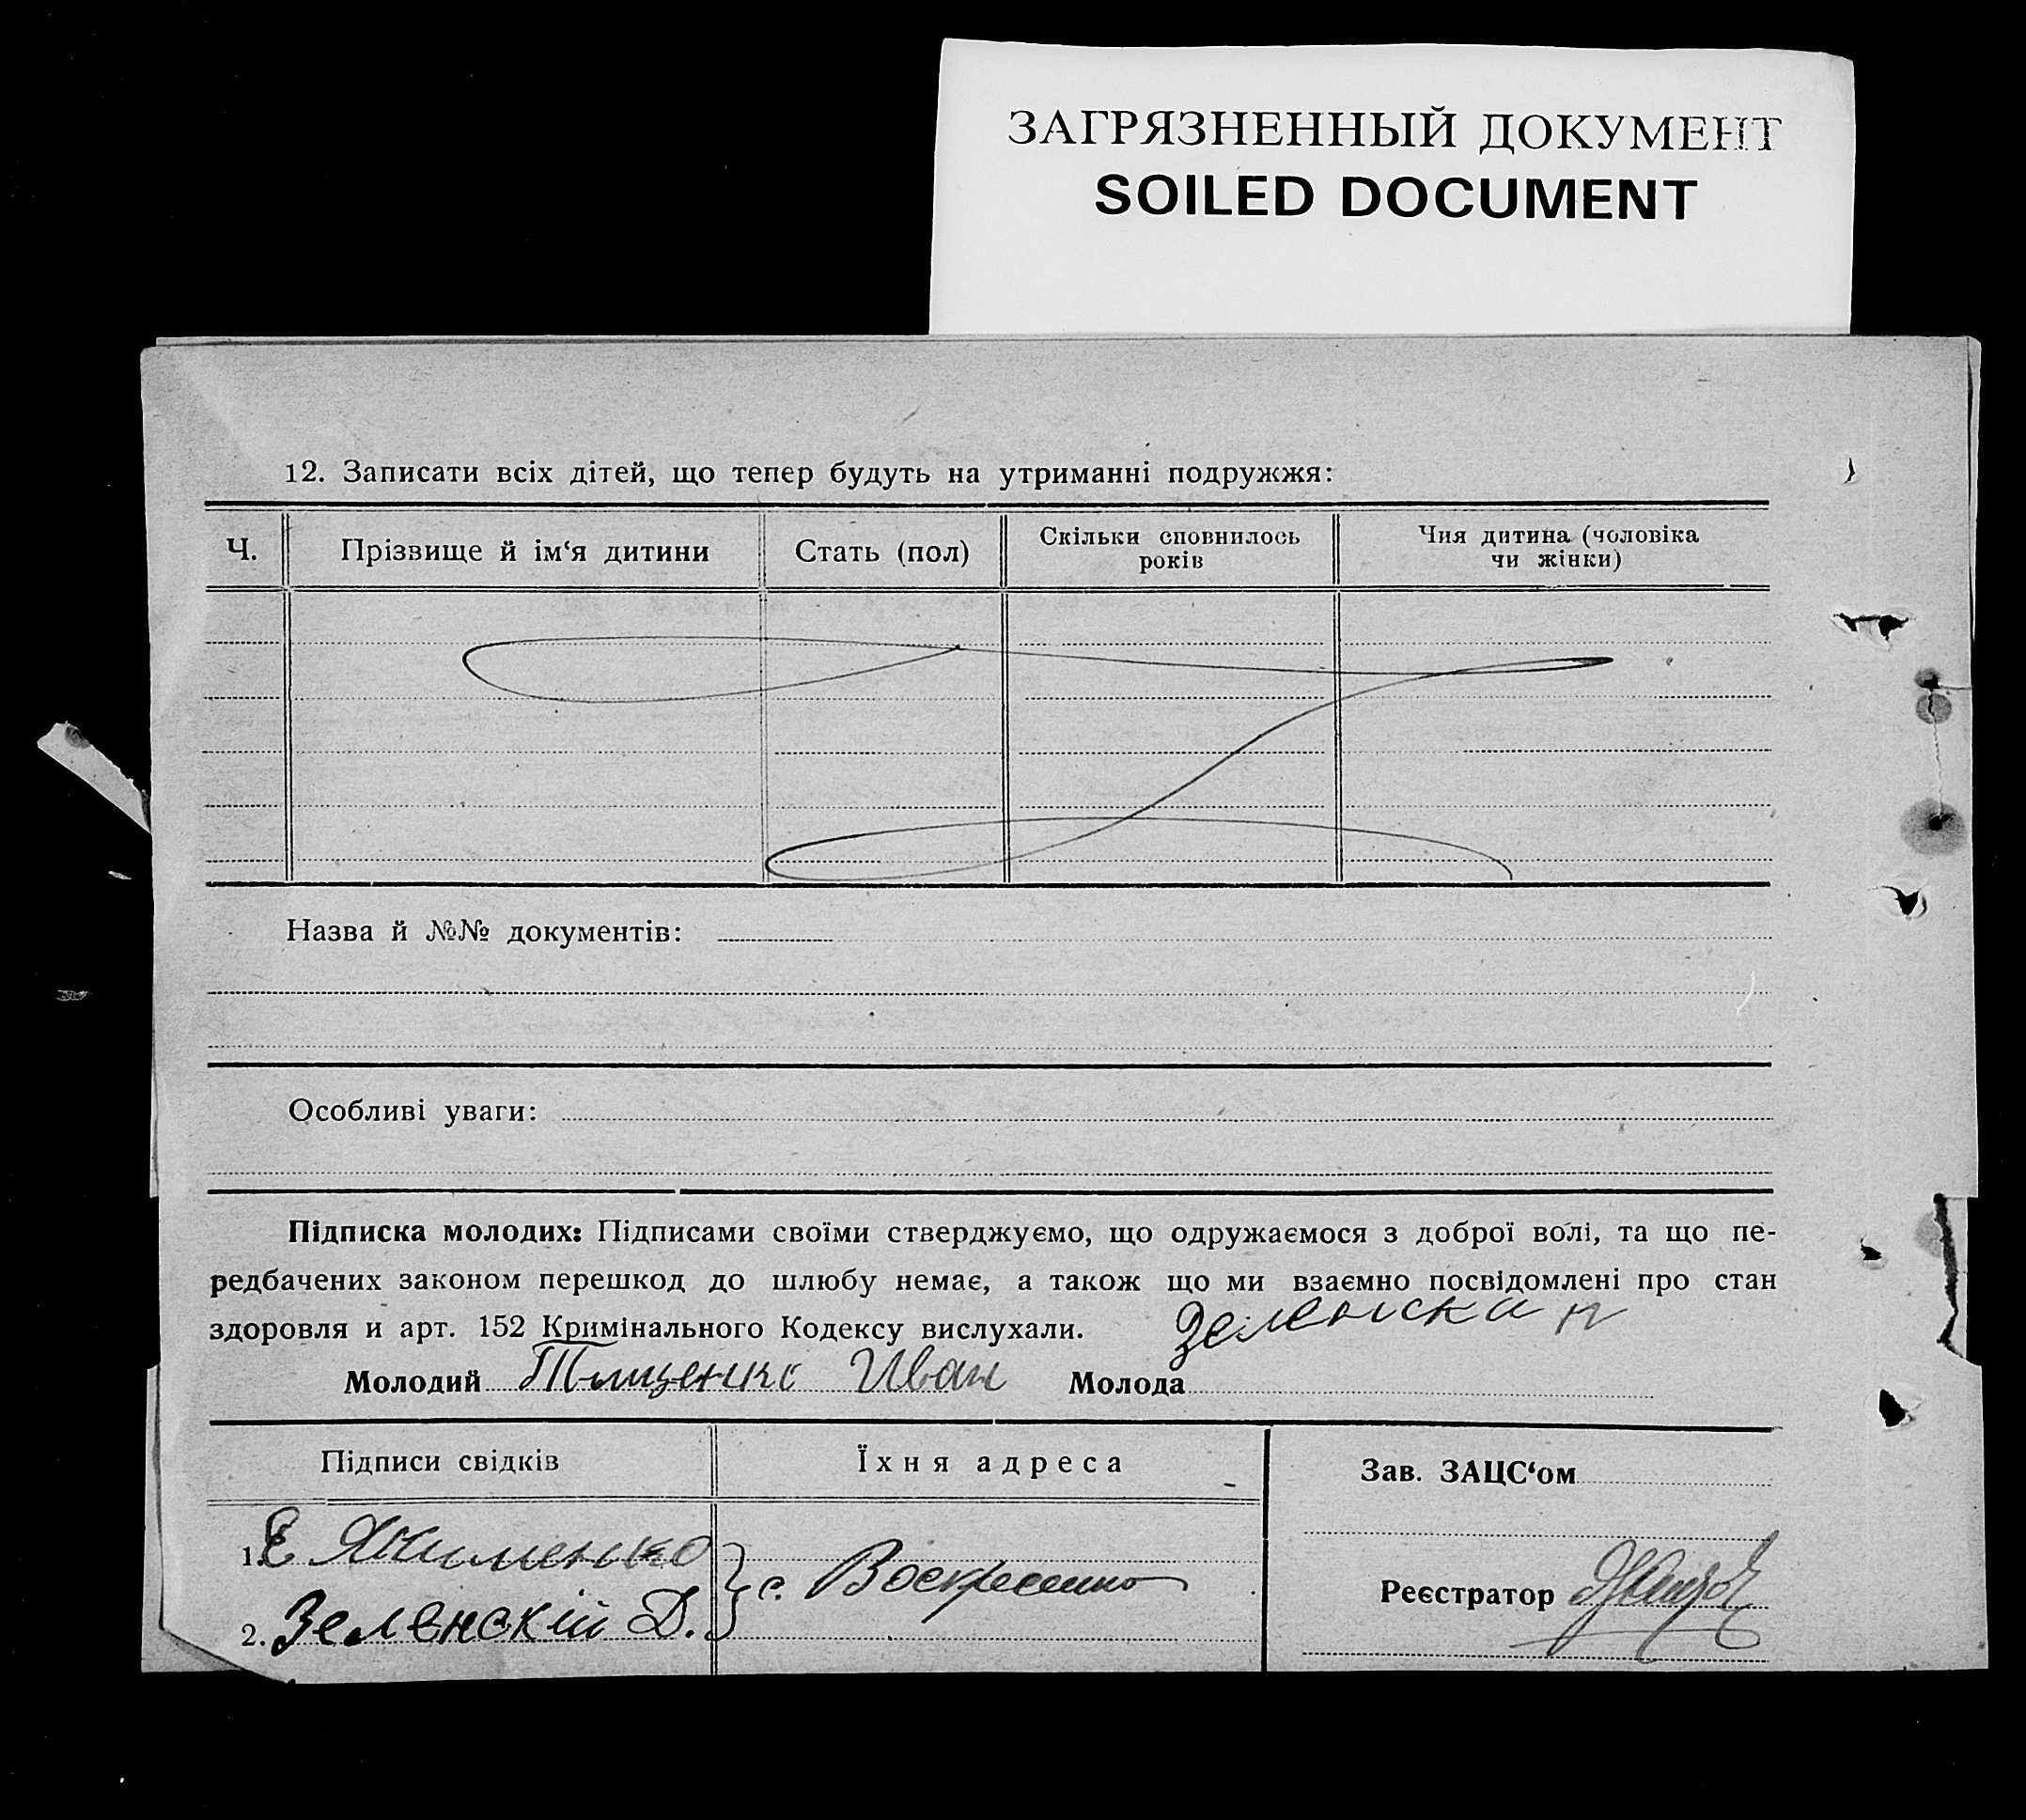 ЗАГРЯЗНЕННЫЙ ДОКУМЕНТ
SOILED DOCUMENT
12. Записати всіх дітей, що тепер будуть на утриманні подружжя:
Ч.
Прізвище й ім‘я дитини
Стать (пол)
Скільки сповнилось
років
Чия дитина (чоловіка
чи жінки)
Назва й №№ документів:
Особливі уваги:
Підписка молодих: Підписами своїми стверджуємо, що одружаємося з доброї волі, та що пе-
редбачених законом перешкод до шлюбу немає, а також що ми взаємно посвідомлені про стан
здоровля и арт. 152 Кримінального Кодексу вислухали.
Молодий Тищенко Иван Молода
Підписи свідків
Їхня адреса
Зав. ЗАЦС‘ом
1. Е Якименко
2. Зеленскій Д.
с.
Реєстратор